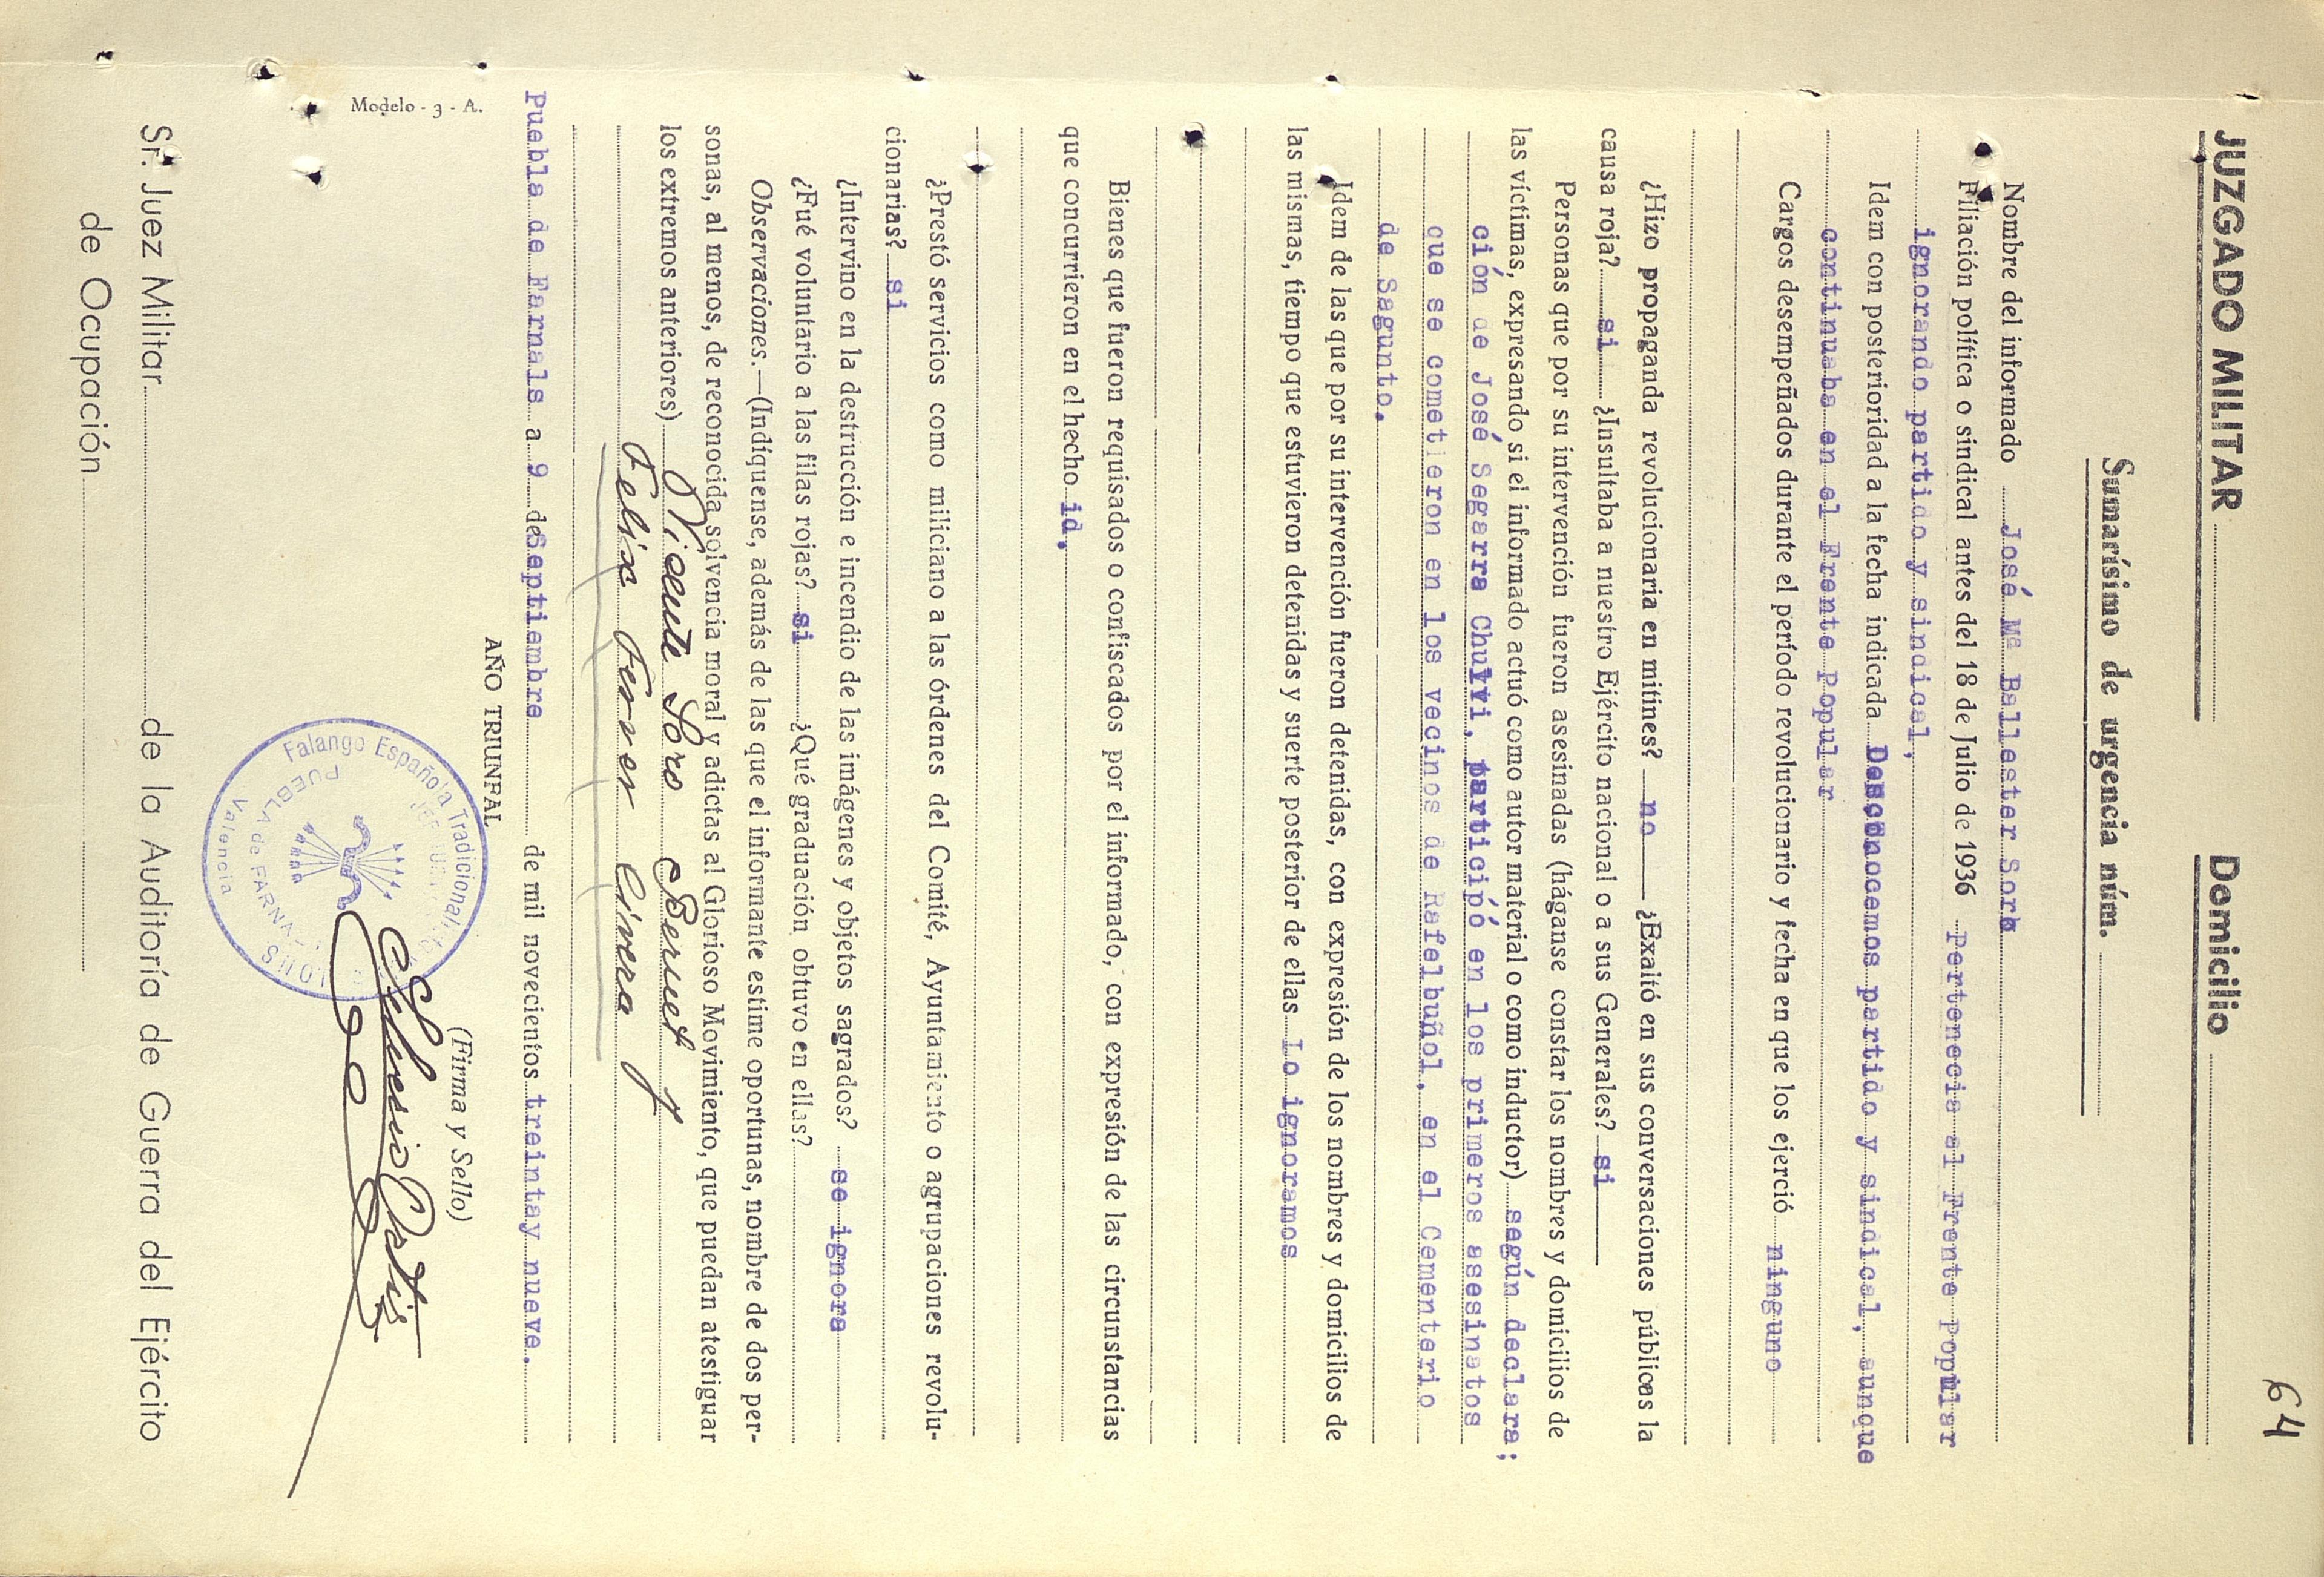 64
JUZGADO MILITAR
Domicilio
Sumarísimo de urgencia núm.
Nombre del informado José Mª Ballester Sorb
Filiación política o sindical antes del 18 de Julio de 1936 Pertenecia al Frente Popular
ignorando partido y sindical,
Idem con posterioridad a la fecha indicada Desconocemos partido y sindical, aunque
continuaba en el Frente Popular
Cargos desempeñados durante el período revolucionario y fecha en que los ejerció ninguno
¿Hizo propaganda revolucionaria en mitines? no ¿Exaltó en sus conversaciones públicas la
causa roja? si ¿Insultaba a nuestro Ejército nacional o a sus Generales? si
Personas que por su intervención fueron asesinadas (háganse constar los nombres y domicilios de
las víctimas, expresando si el informado actuó como autor material o como inductor) según declara;
ción de José Segarra Chulvi, participó en los primeros asesinatos
que se cometieron en los vecinos de Rafelbuñol, en el Cementerio
de Sagunto.
Idem de las que por su intervención fueron detenidas, con expresión de los nombres y domicilios de
las mismas, tiempo que estuvieron detenidas y suerte posterior de ellas Lo ignoramos
Bienes que fueron requisados o confiscados por el informado, con expresión de las circunstancias
que concurrieron en el hecho id.
¿Prestó servicios como miliciano a las órdenes del Comité, Ayuntamiento o agrupaciones revolu-
cionarias? si
¿Intervino en la destrucción e incendio de las imágenes y objetos sagrados? se ignora
¿Fué voluntario a las filas rojas? si ¿Qué graduación obtuvo en ellas?
Observaciones.—(Indíquense, además de las que el informante estime oportunas, nombre de dos per-
sonas, al menos, de reconocida solvencia moral y adictas al Glorioso Movimiento, que puedan atestiguar
los extremos anteriores) Vicente Soro Bernet y
Felix Ferrer Civera
Puebla de Farnals a 9 de Septiembre de mil novecientos treintay nueve.
AÑO TRIUNFAL
(Firma y Sello)
Falange Española Tradicionalista
PUEBLA de FARNALS
Valencia
Modelo - 3 - A.
Sr. Juez Militar de la Auditoría de Guerra del Ejército
de Ocupación